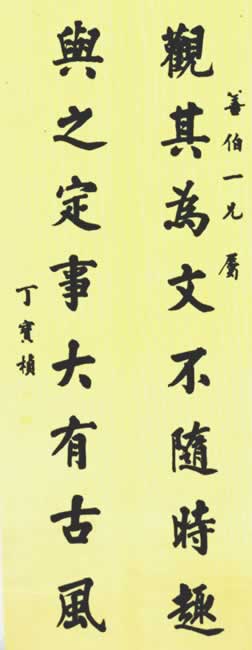 善伯一兄屬
觀其為文不隨時趣
與之定事大有古風
丁寶楨